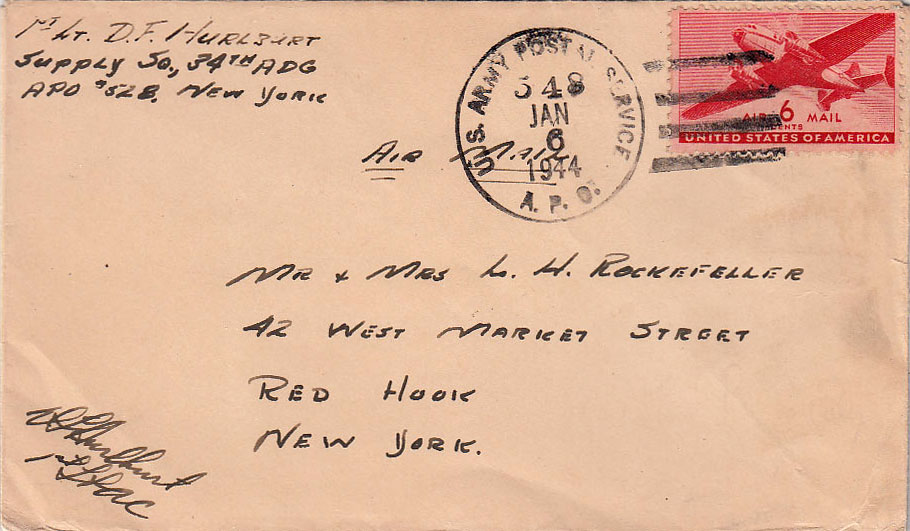 1ST LT. D.F. HURLBURT
SUPPLY SQ., 34TH ADG
APO #528, NEW YORK
AIR MAIL
U.S. ARMY POSTAL SERVICE
548
JAN
6
1944
A. P. O.
AIR 6 MAIL
CENTS
UNITED STATES OF AMERICA
MR + MRS L. H. ROCKEFELLER
42 WEST MARKET STREET
RED HOOK
NEW YORK.
DFHurlburt
1st Lt AC